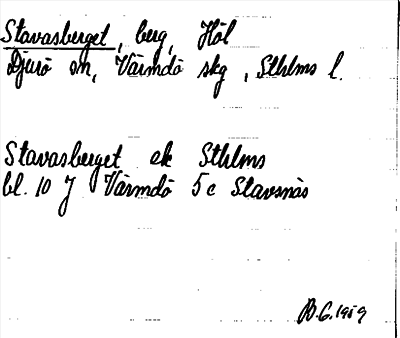 Stavasberget, berg, Höl
Djurö sn, Värmdö skg, Sthlms l.
Stavasberget ek Sthlms
bl. 10 J Värmdö 5 c Stavsnäs
B.G. 1959